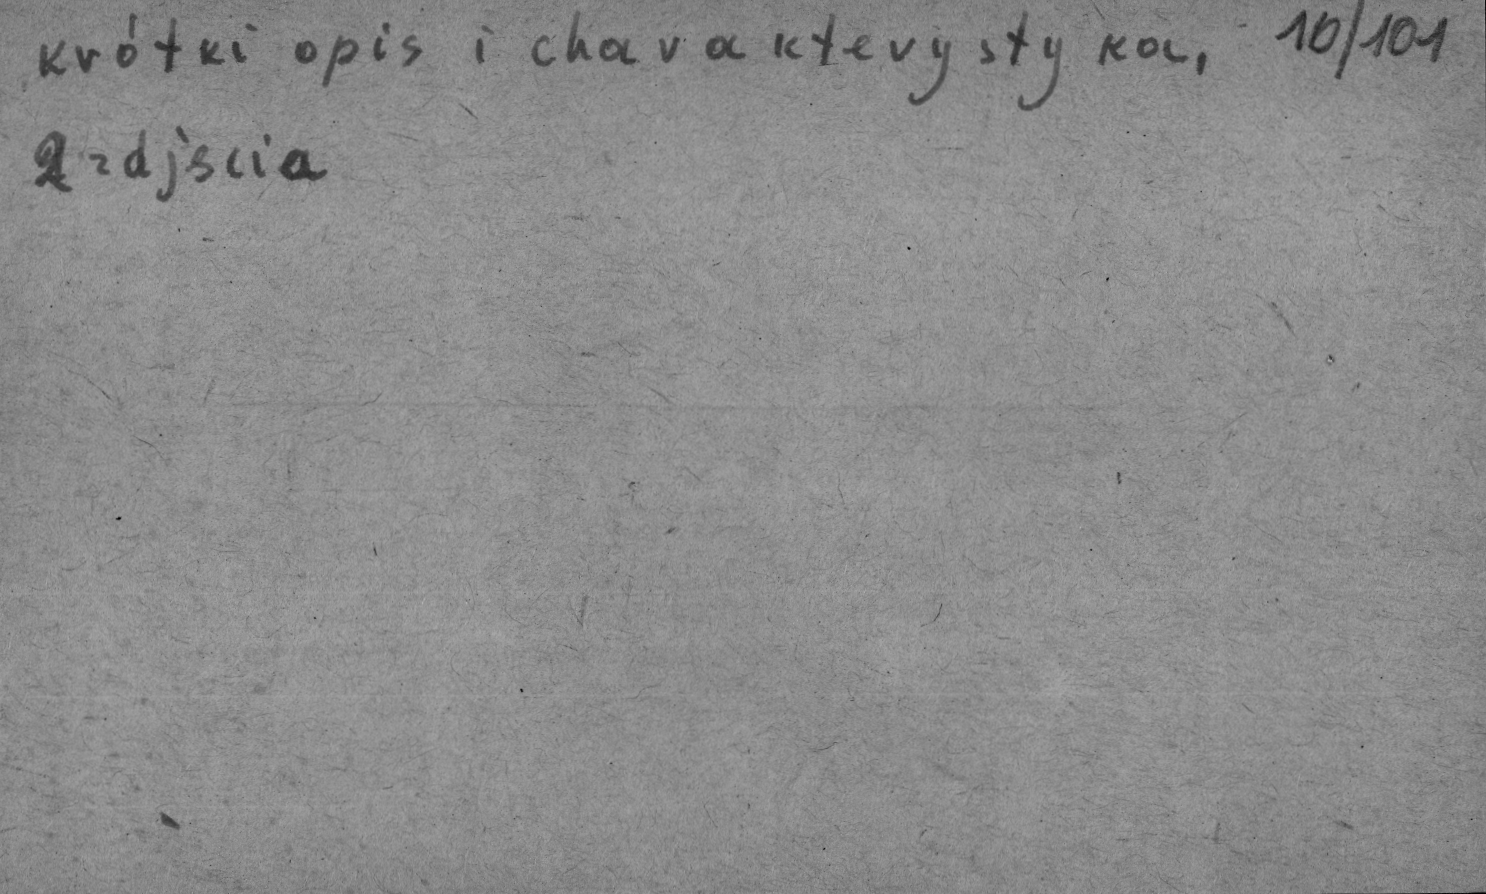 krótki opis i charakterystyka, 10/101
2 zdjścia